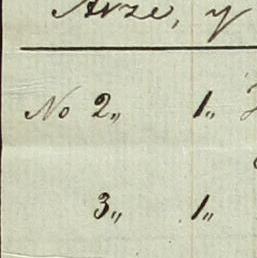 Arze, y
No 2,, 1,,
3,, 1,,